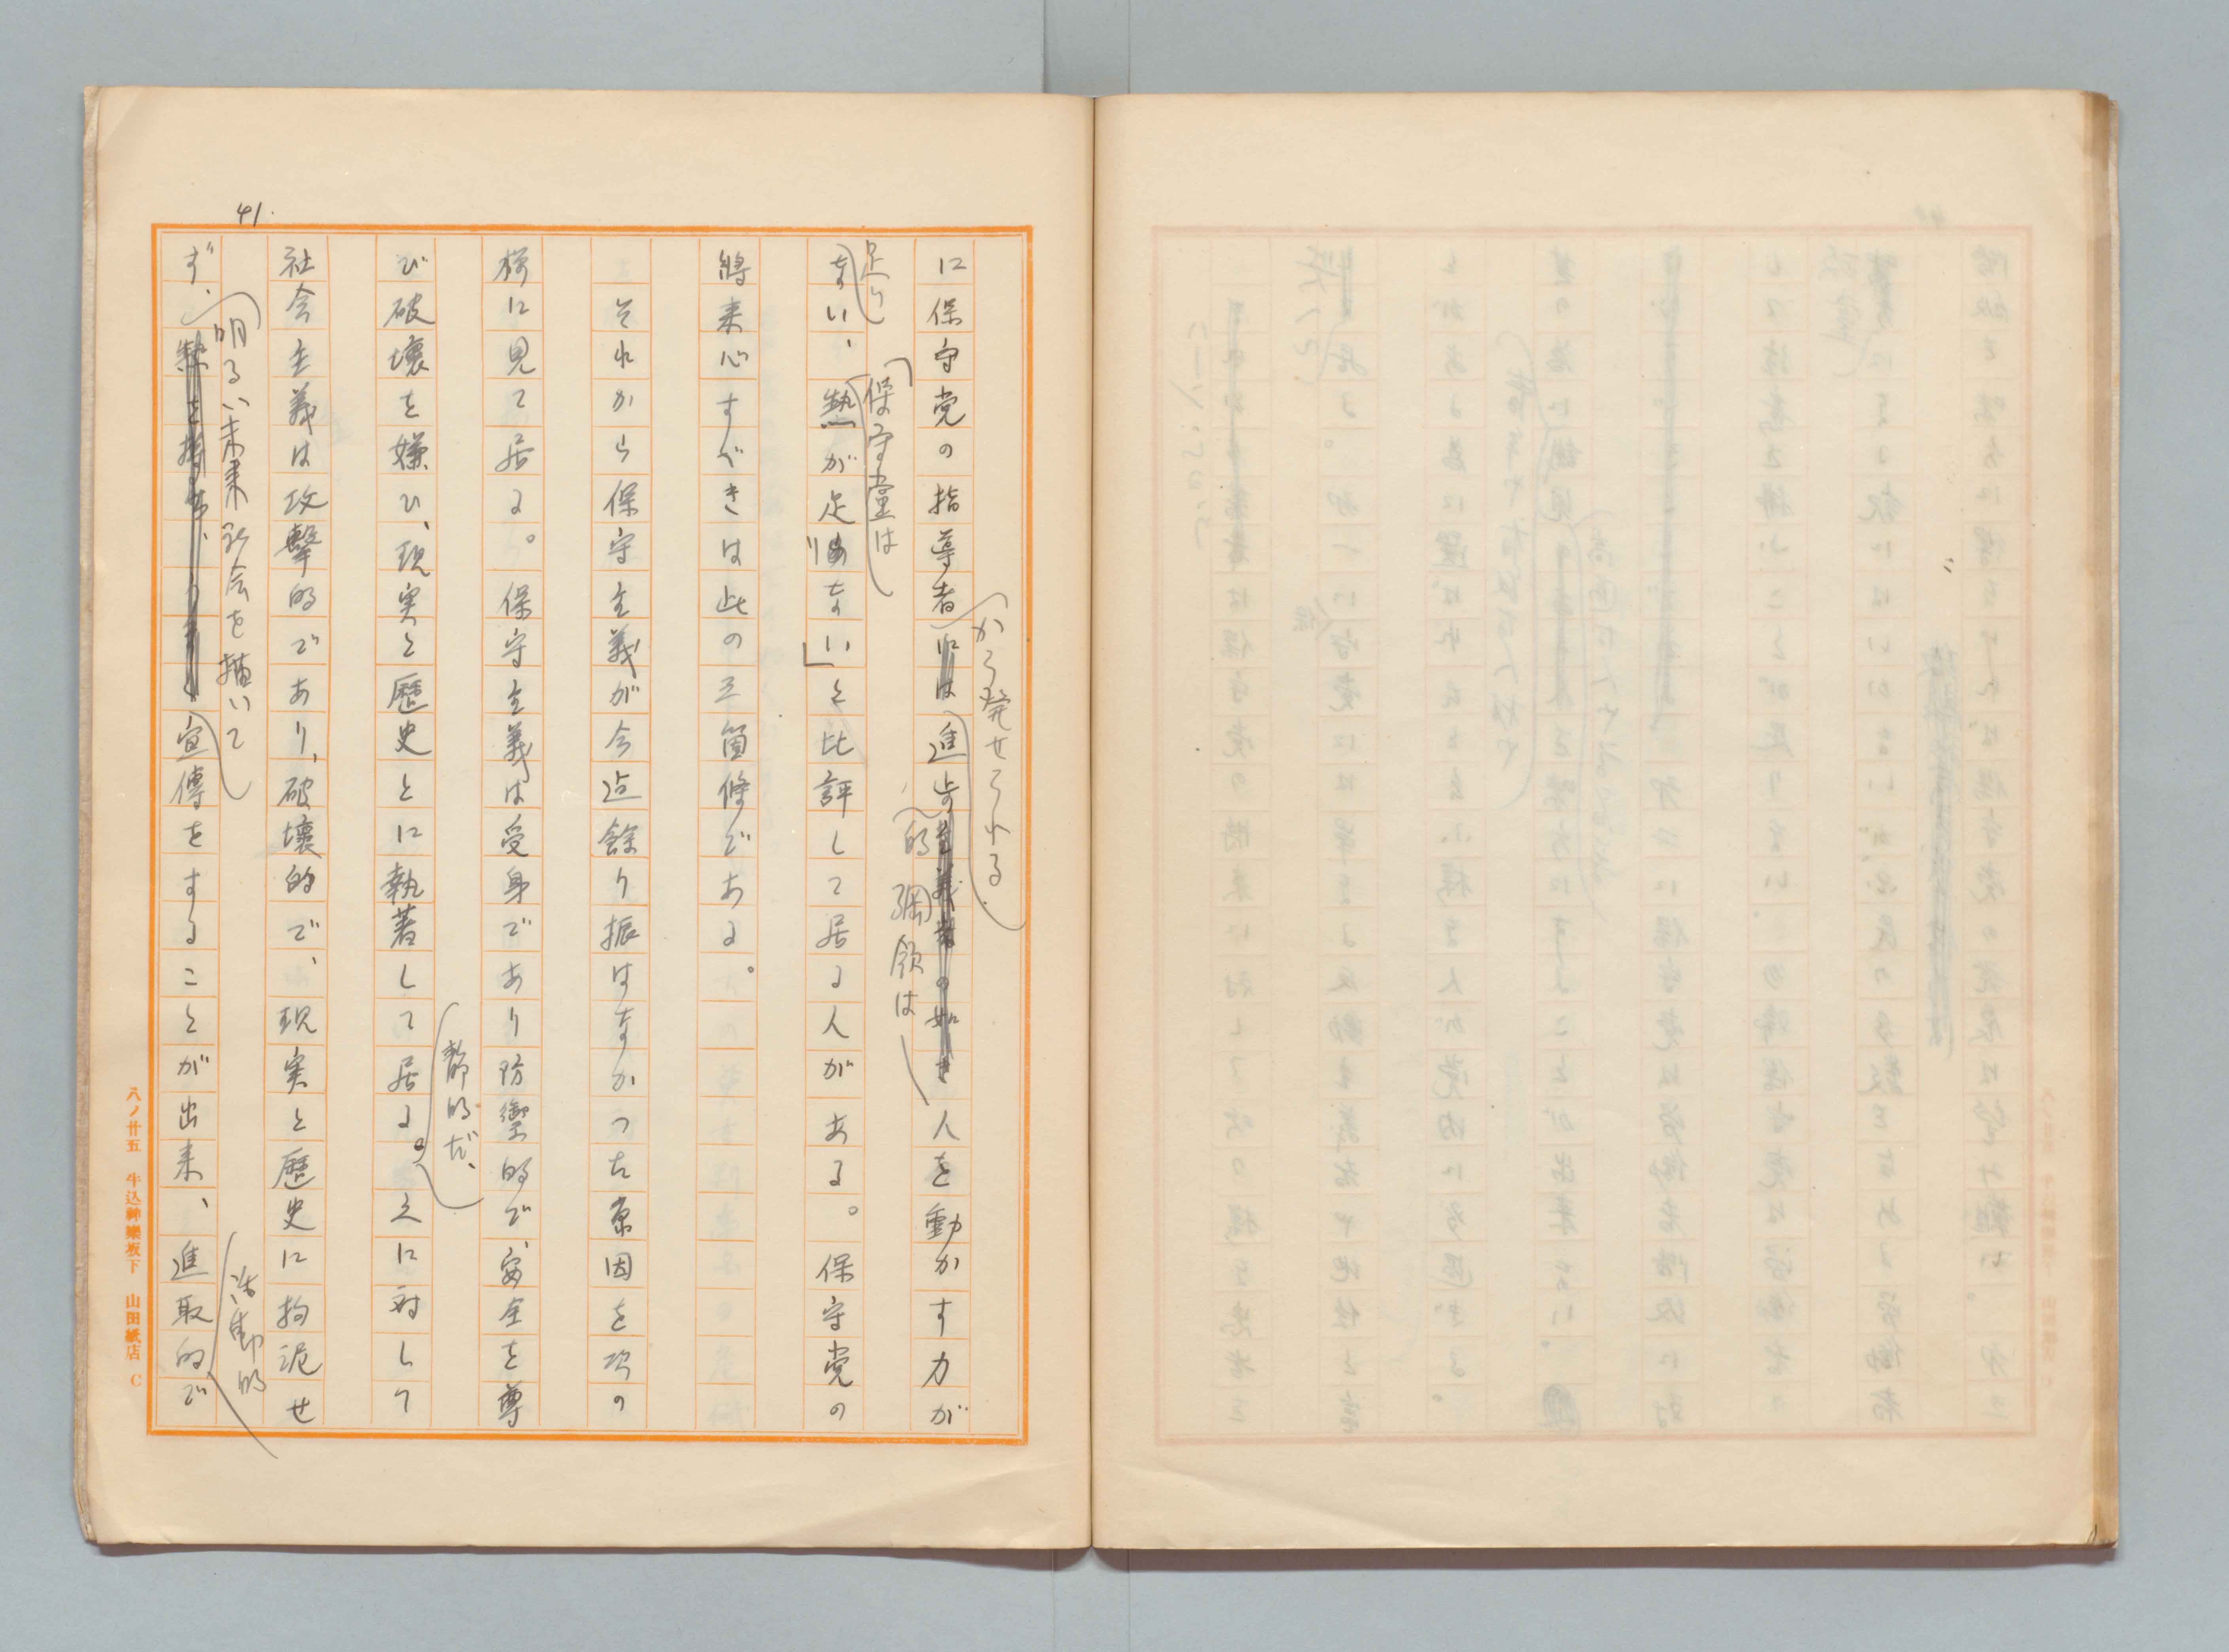 41.
に保守党の指導者には進歩主義者の如き人を動かす力が
から発せられる
的綱領は
ない、熱が足りない」と批評して居る人がある。保守党の
足り
「保守堂は
将来心すべきは此の三箇條である。
それから保守主義が今迄餘り振はなかつた原因を次の
様に見て居る。保守主義は受身であり防禦的で、安全を尊
び破壊を嫌ひ、現実と歴史とに執着して居る。之に対して
静的だ、
社会主義は攻撃的であり、破壊的で、現実と歴史に拘泥せ
活動的
ず、宣傳をすることが出来、進取的で
明るい未来社会を描いて
八ノ廿五 牛込神樂坂下 山田紙店 C